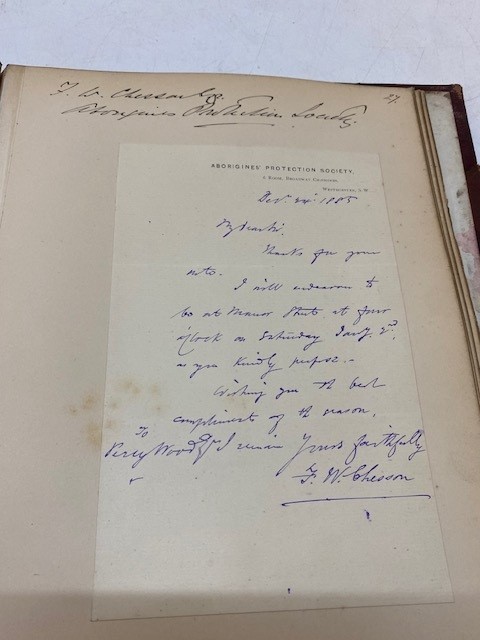 F. W. Chesson Esq.
Aborigines Protection Society.
27.
ABORIGINES' PROTECTION SOCIETY,
Broadway Chambers,
Westminster, S.W.
Decr. 24th 1885
My dear Sir,
Thanks for your
note.
I will endeavour to
be at Manor Street at four
o'clock on Saturday Jany. 2nd,
as you kindly propose.-
Wishing you the best
compliments of the season,
I remain Yours faithfully
F. W. Chesson
To
Percy Wood